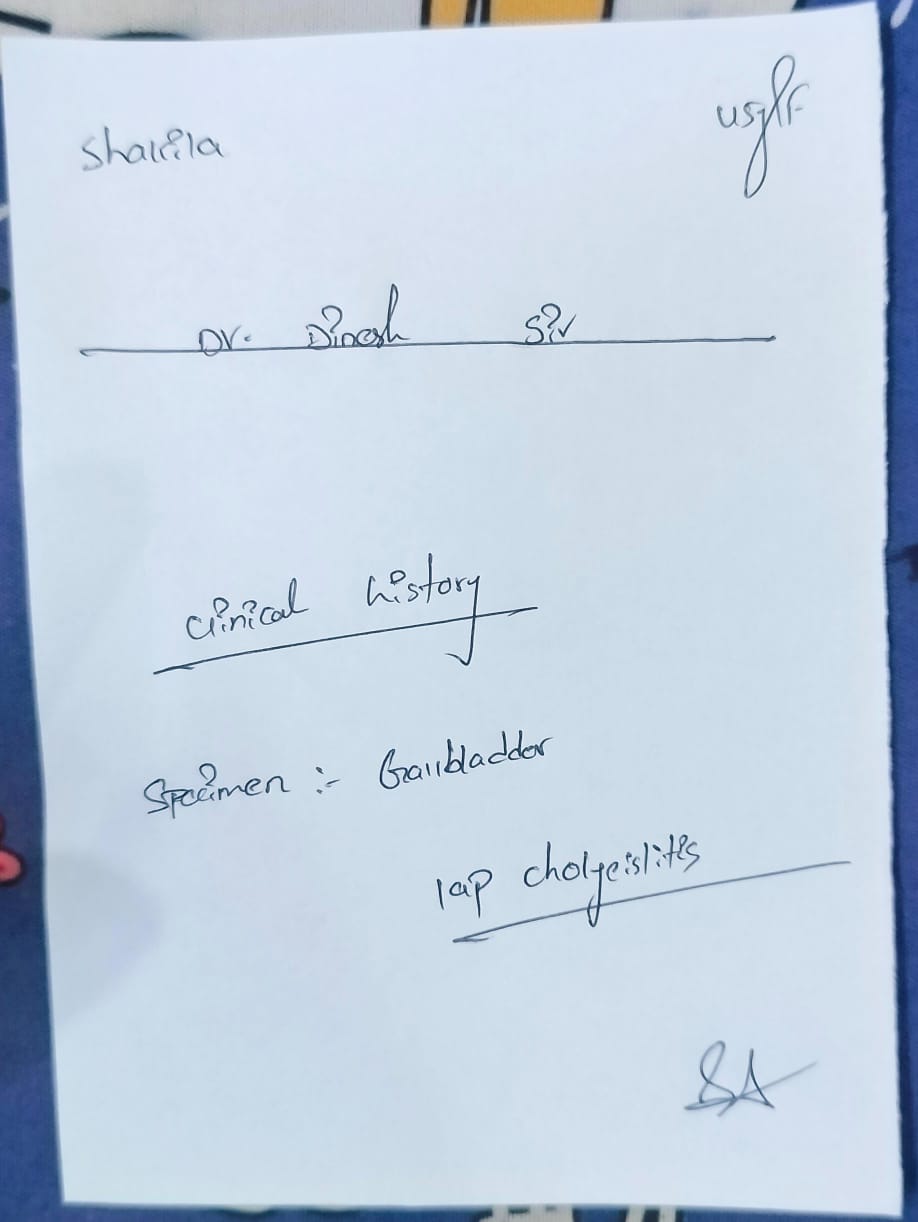 Shakila
45y/F
Dr. Dinesh Sir
Clinical history
Specimen :- Gallbladder
lap cholyeislitis